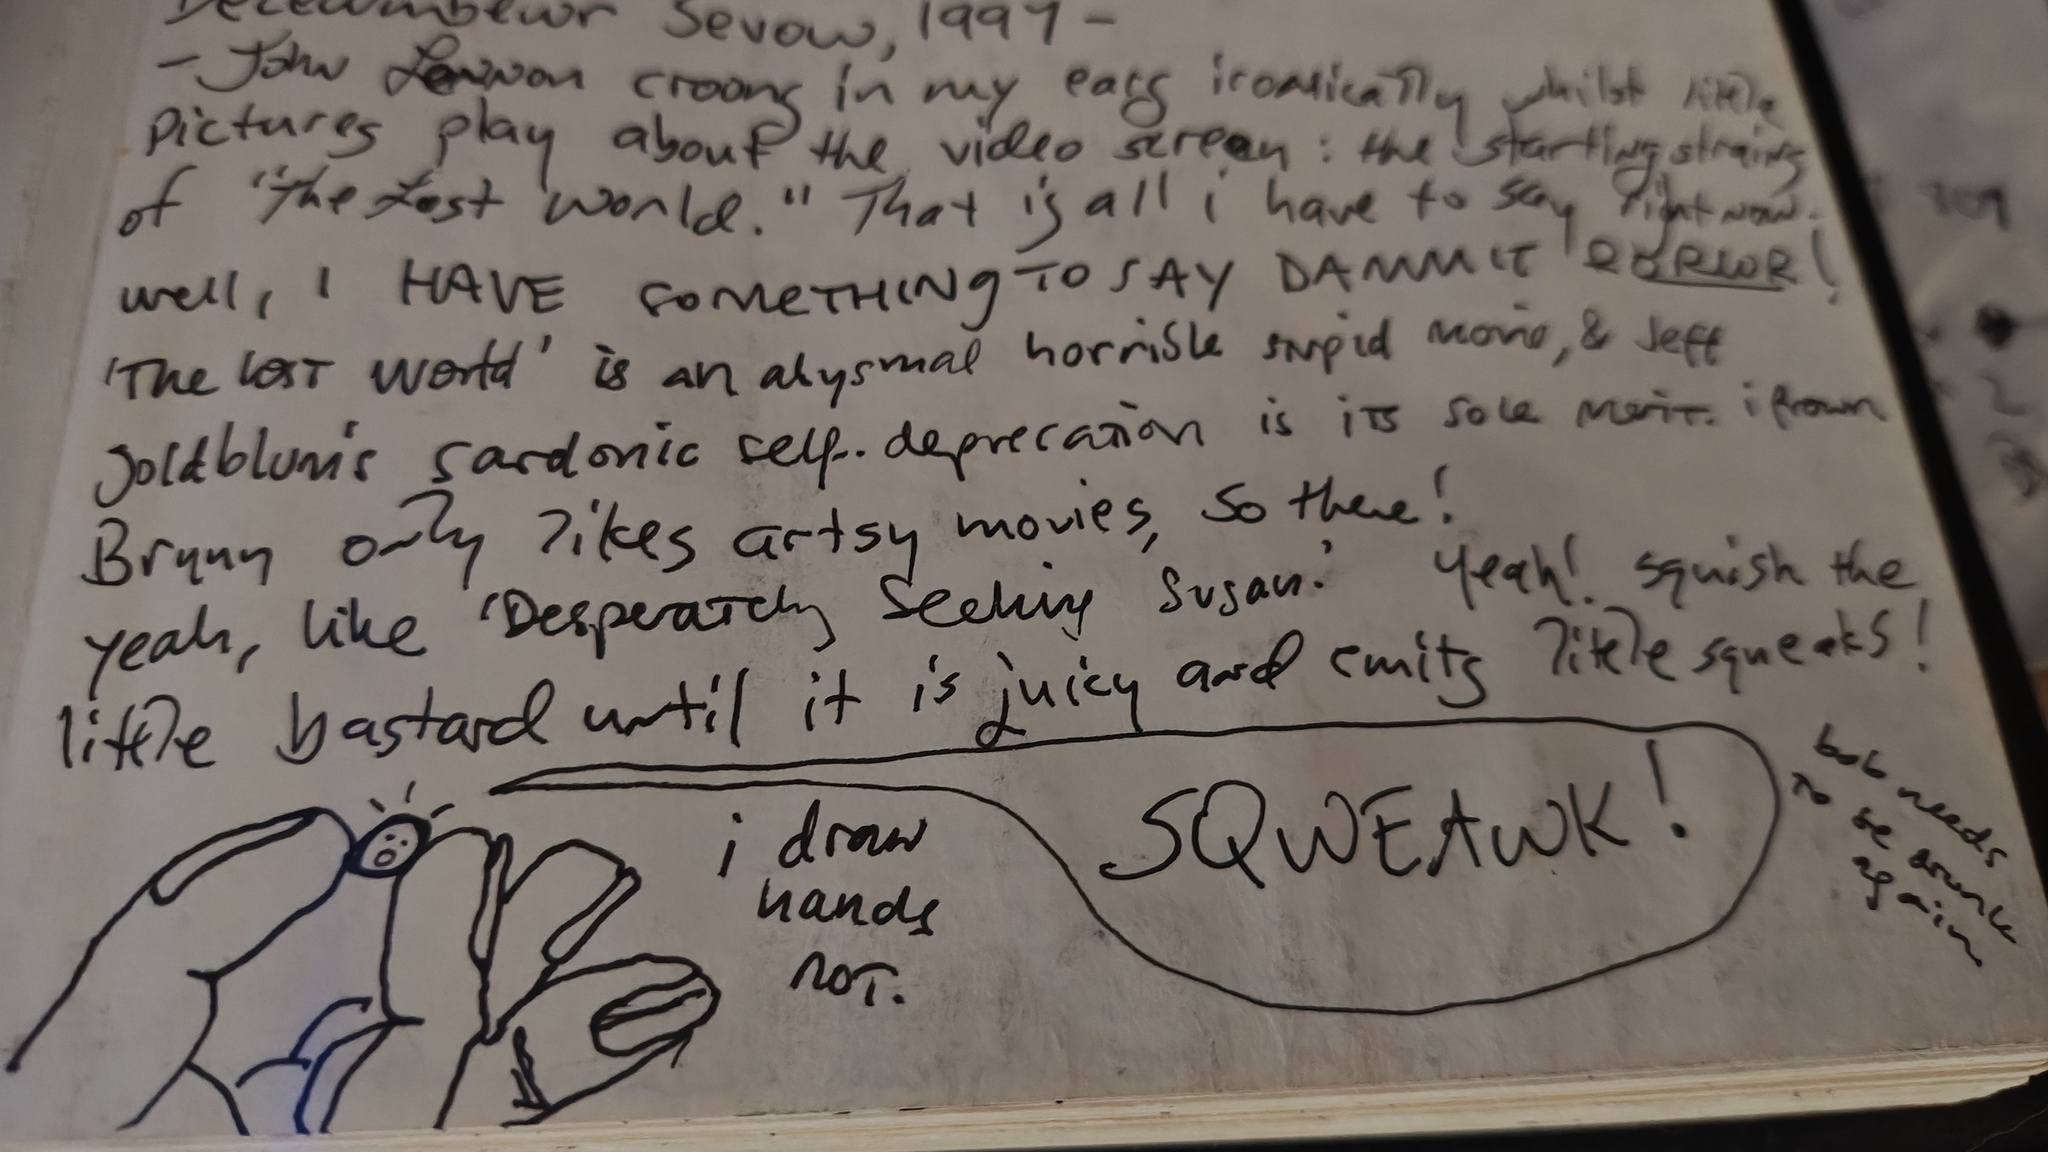 Decewmbewr Sevow, 1997 –
– John Lennon croons in my ears ironically whilst little
pictures play about the video screen: the starting strains
of "The Lost World." That is all i have to say right now.
well, I HAVE SOMETHING TO SAY DAMMIT
'The Lost World' is an abysmal horrible stupid movie, & Jeff
Goldblum's sardonic self-deprecation is its sole merit. i frown
Brynn only likes artsy movies, so there!
yeah, like 'Desperately Seeking Susan.' Yeah! squish the
little bastard until it is juicy and emits little squeaks!
SQWEAWK!
i draw
hands
not.
bob needs
to be drunk
again